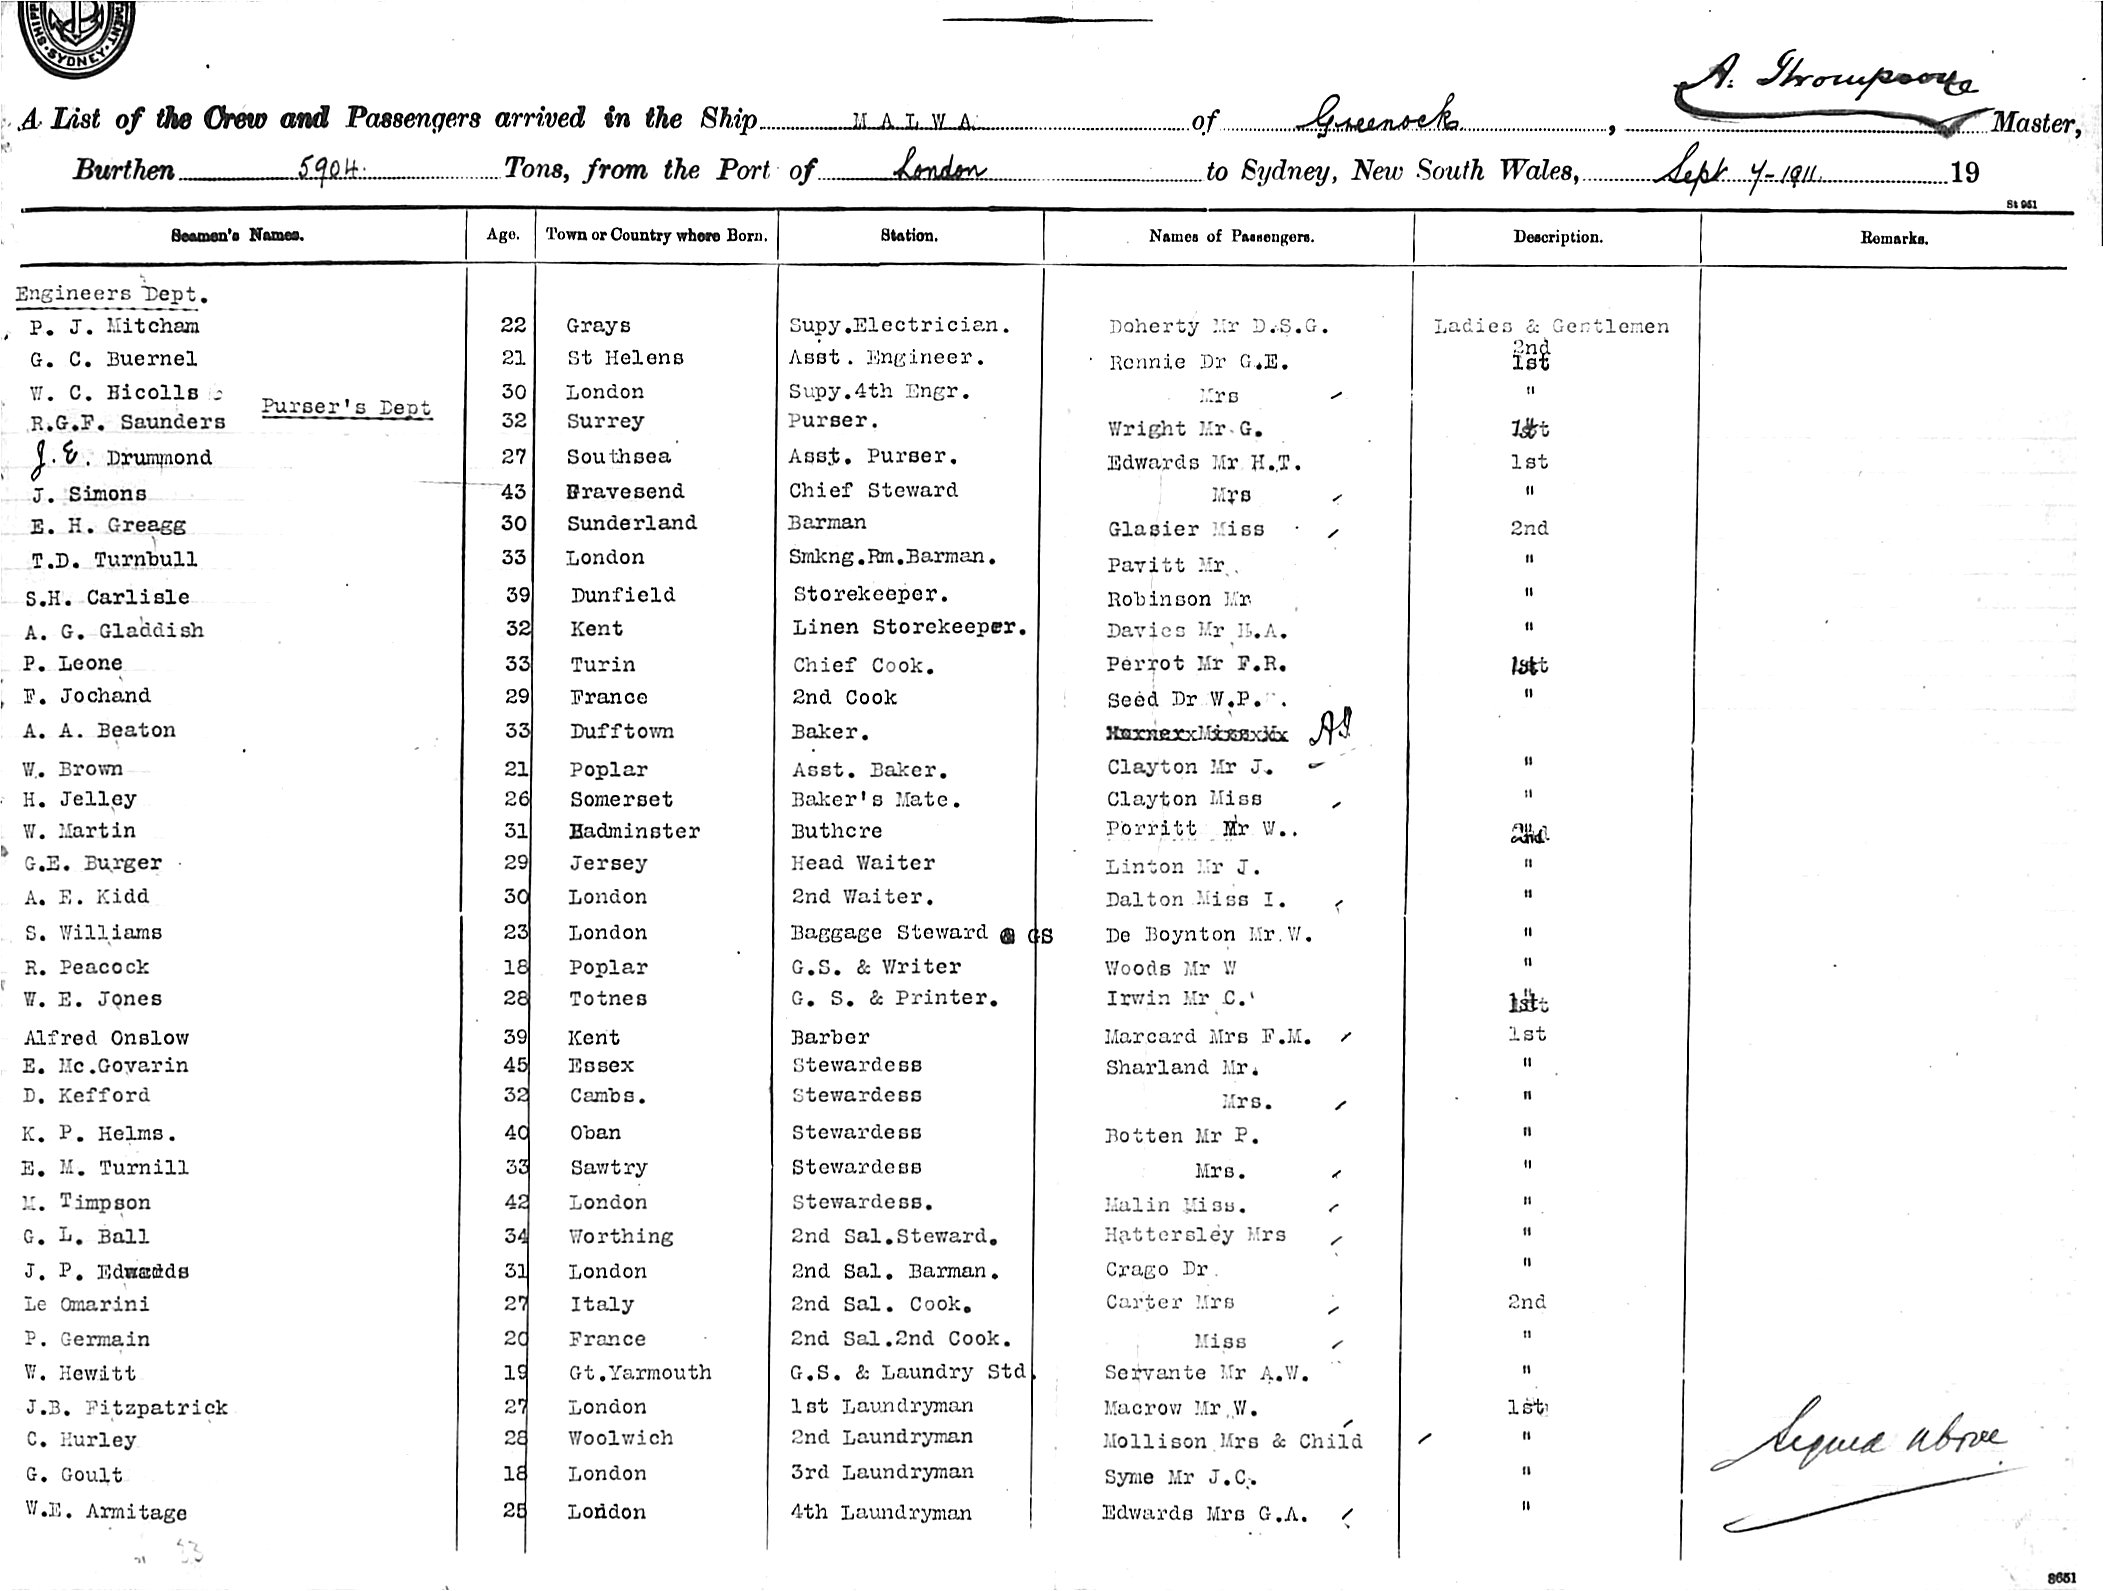 SYDNEY
A. Thompson
A List of the Crew and Passengers arrived in the Ship MALWA of Greenock, Master,
Burthen 5904. Tons, from the Port of London to Sydney, New South Wales, Sept 7-1911. 19
St 951
Seamen's Names. Age. Town or Country where Born. Station. Names of Passengers. Description. Remarks.
Engineers Dept.
P. J. Mitcham 22 Grays Supy.Electrician. Doherty Mr D.S.G. Ladies & Gentlemen
2nd
G. C. Buernel 21 St Helens Asst. Engineer. Rennie Dr G.E. 1st
W. C. Hicolls 30 London Supy.4th Engr. Mrs "
Purser's Dept
R.G.F. Saunders 32 Surrey Purser. Wright Mr G. 1st
J.E. Drummond 27 Southsea Asst. Purser. Edwards Mr H.T. 1st
J. Simons 43 Gravesend Chief Steward Mrs "
E. H. Greagg 30 Sunderland Barman Glasier Miss 2nd
T.D. Turnbull 33 London Smkng.Rm.Barman. Pavitt Mr. "
S.H. Carlisle 39 Dunfield Storekeeper. Robinson Mr "
A. G. Gladdish 32 Kent Linen Storekeeper. Davies Mr H.A. "
P. Leone 33 Turin Chief Cook. Perrot Mr F.R. 1st
F. Jochand 29 France 2nd Cook Seed Dr W.P. "
A. A. Beaton 33 Dufftown Baker.
W. Brown 21 Poplar Asst. Baker. Clayton Mr J. "
H. Jelley 26 Somerset Baker's Mate. Clayton Miss "
W. Martin 31 Badminster Buthcre Porritt Mr W.. 2nd
G.E. Burger 29 Jersey Head Waiter Linton Mr J. "
A. E. Kidd 30 London 2nd Waiter. Dalton Miss I. "
S. Williams 23 London Baggage Steward & GS De Boynton Mr.W. "
R. Peacock 18 Poplar G.S. & Writer Woods Mr W "
W. E. Jones 28 Totnes G. S. & Printer. Irwin Mr C. 1st
Alfred Onslow 39 Kent Barber Marcard Mrs F.M. 1st
E. Mc.Govarin 45 Essex Stewardess Sharland Mr. "
D. Kefford 32 Cambs. Stewardess Mrs. "
K. P. Helms. 40 Oban Stewardess Botten Mr P. "
E. M. Turnill 33 Sawtry Stewardess Mrs. "
M. Timpson 42 London Stewardess. Malin Miss. "
G. L. Ball 34 Worthing 2nd Sal.Steward. Hattersley Mrs "
J. P. Edwards 31 London 2nd Sal. Barman. Crago Dr "
Le Omarini 27 Italy 2nd Sal. Cook. Carter Mrs 2nd
P. Germain 20 France 2nd Sal.2nd Cook. Miss "
W. Hewitt 19 Gt.Yarmouth G.S. & Laundry Std. Servante Mr A.W. "
J.B. Fitzpatrick 27 London 1st Laundryman Macrow Mr W. 1st
C. Hurley 28 Woolwich 2nd Laundryman Mollison Mrs & Child "
G. Goult 18 London 3rd Laundryman Syme Mr J.C. "
W.E. Armitage 25 London 4th Laundryman Edwards Mrs G.A. "
Signed above
33
8651